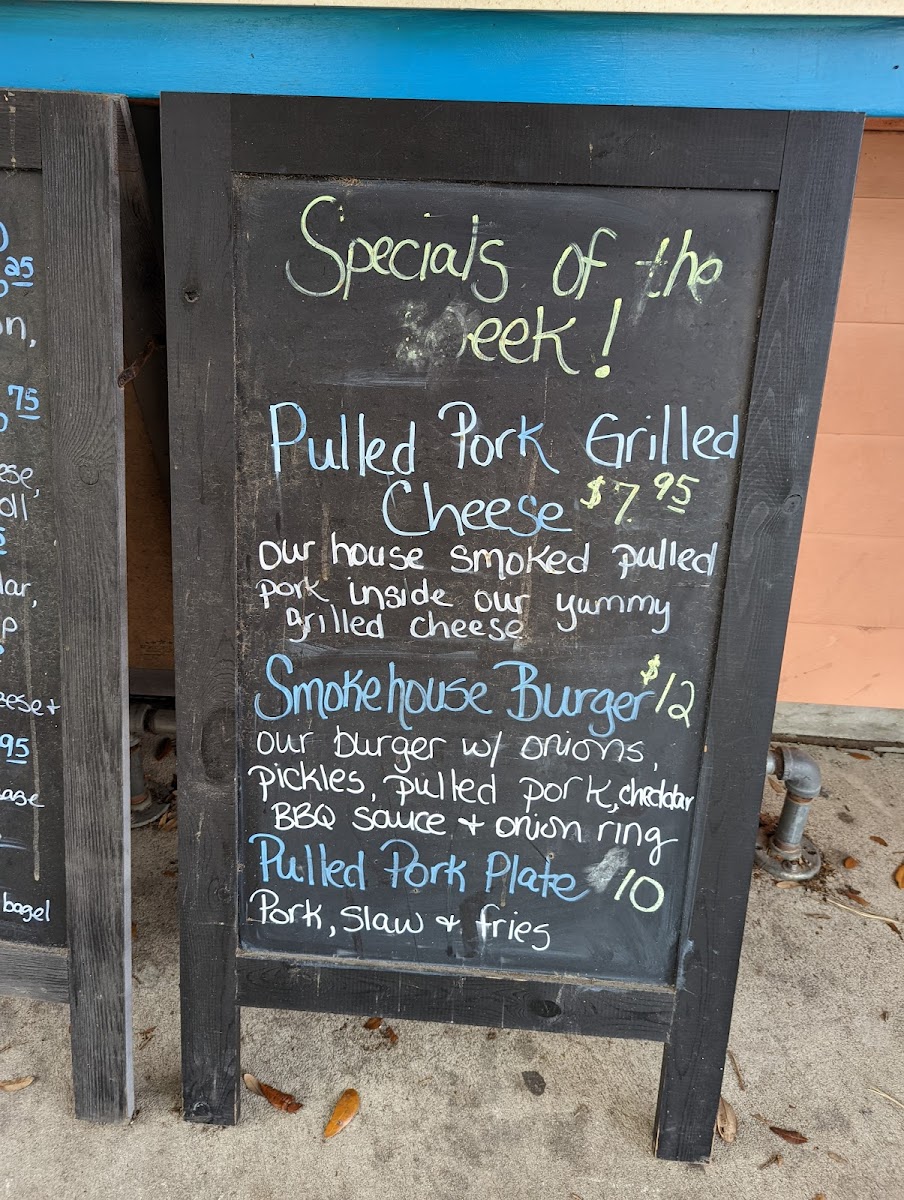 25
on,
75
ese,
oll
lar,
p
eese+
95
base
bagel
Specials of the
eek!
Pulled Pork Grilled
Cheese $7.95
our house smoked pulled
pork inside our yummy
grilled cheese
Smokehouse Burger $12
our burger w/ onions,
pickles, pulled pork, cheddar
BBQ sauce + onion ring
Pulled Pork Plate 10
Pork, slaw + fries